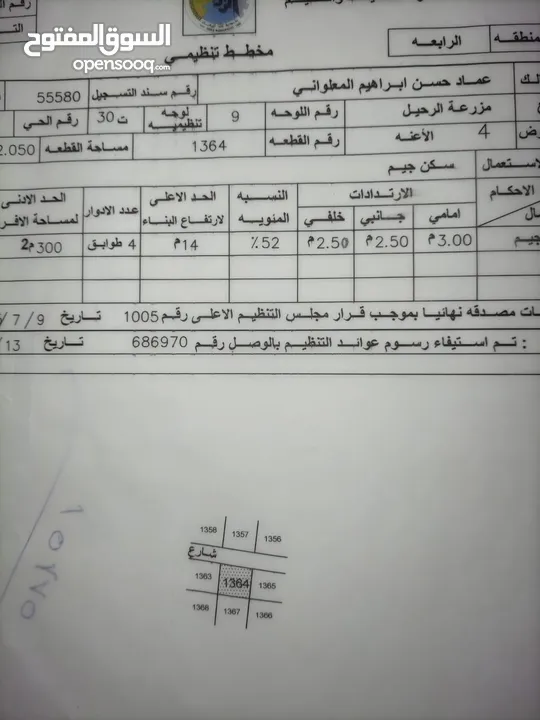 السوق المفتوح
opensooq.com
مخطط تنظيمي
المنطقه الرابعه
عماد حسن ابراهيم المعلواني رقم سند التسجيل 55580
مزرعة الرحيل رقم اللوحه 9 لوحه تنظيميه ت30 رقم الحي
4 الأعنه رقم القطعه 1364 مساحة القطعه 2.050
الاستعمال سكن جيم
الاحكام الارتدادات النسبه المئويه الحد الاعلى لارتفاع البناء عدد الادوار الحد الادنى لمساحة الافر
امامي جانبي خلفي
جيم 3.00م 2.50م 2.50م 52٪ 14م 4 طوابق 300م2
ات مصدقه نهائيا بموجب قرار مجلس التنظيم الاعلى رقم 1005 تاريخ 9 / 7 /
: تم استيفاء رسوم عوائد التنظيم بالوصل رقم 686970 تاريخ 13/
1358 1357 1356
شارع
1363 1364 1365
1368 1367 1366